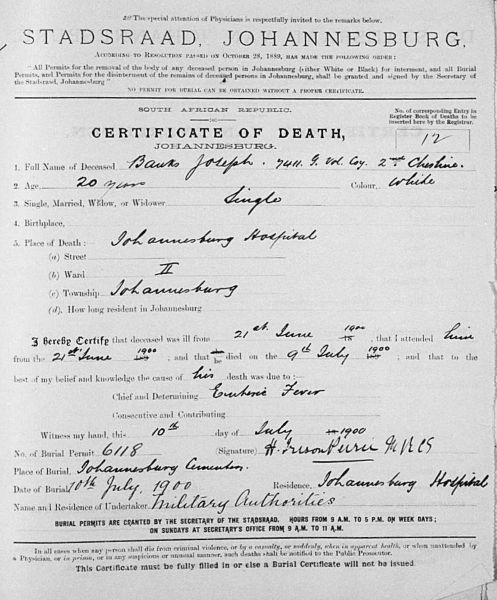 The special attention of Physicians is respectfully invited to the remarks below.
STADSRAAD, JOHANNESBURG,
ACCORDING TO RESOLUTION PASSED ON OCTOBER 28, 1889, HAS MADE THE FOLLOWING ORDER:
"All Permits for the removal of the body of any deceased person in Johannesburg (either White or Black) for interment, and all Burial
Permits, and Permits for the disinterment of the remains of deceased persons in Johannesburg, shall be granted and signed by the Secretary of
the Stadsraad, Johannesburg."
NO PERMIT FOR BURIAL CAN BE OBTAINED WITHOUT A PROPER CERTIFICATE.
SOUTH AFRICAN REPUBLIC.
No. of corresponding Entry in
Register Book of Deaths to be
inserted here by the Registrar.
CERTIFICATE OF DEATH,
12
JOHANNESBURG.
1. Full Name of Deceased Banks Joseph. 7411. G. Vol. Coy. 2nd Cheshire.
2. Age 20 years Colour, White
3. Single, Married, Widow, or Widower Single
4. Birthplace,
5. Place of Death: Johannesburg Hospital
(a) Street
(b) Ward II
(c) Township Johannesburg
(d). How long resident in Johannesburg
I hereby Certify that deceased was ill from 21st June 1900, that I attended him
from the 21st June 1900; and that he died on the 9th July 1900; and that to the
best of my belief and knowledge the cause of his death was due to:
Chief and Determining Enteric Fever
Consecutive and Contributing
Witness my hand, this 10th day of July 1900
No. of Burial Permit 6118 (Signature) H. MRCS
Place of Burial, Johannesburg Cemetery
Date of Burial 10th July, 1900 Residence, Johannesburg Hospital
Name and Residence of Undertaker, Military Authorities
BURIAL PERMITS ARE GRANTED BY THE SECRETARY OF THE STADSRAAD. HOURS FROM 9 A.M. TO 5 P.M. ON WEEK DAYS;
ON SUNDAYS AT SECRETARY'S OFFICE FROM 9 A.M. TO 11 A.M.
In all cases when any person shall die from criminal violence, or by a casualty, or suddenly, when in apparent health, or when unattended by
a Physician, or in prison, or in any suspicious or unusual manner, such deaths shall be notified to the Public Prosecutor.
This Certificate must be fully filled in or else a Burial Certificate will not be issued.